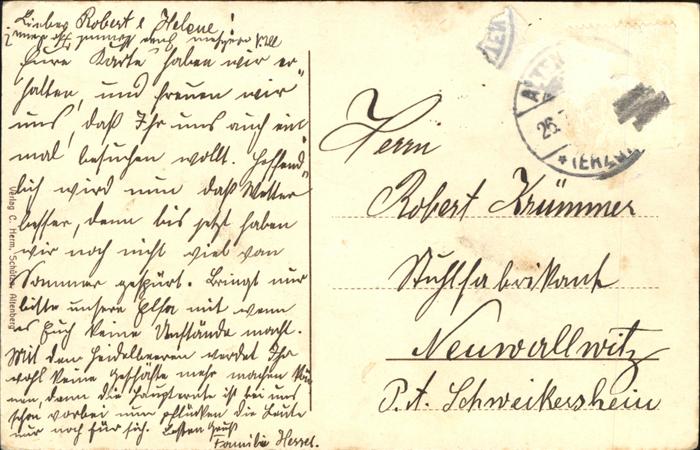 Lieber Robert & Helene!
Eure Karte haben wir er
halten, und freuen wir
uns, daß Ihr uns auch ein
mal besuchen wollt. Hoffend
lich wird nun daß Wetter
besser, denn bis jetzt haben
wir noch nicht viel von
Sommer gespürt. Bringt nur
bitte unsere Elsa mit wenn
es Euch keine Umstände macht.
Mit den Heidelbeeren werdet Ihr
wohl keine Geschäfte mehr machen kön
nen, denn die Haupternte ist bei uns
schon vorbei nun pflücken die Leute
nur noch für sich. Besten Gruß
Familie
Verlag C. Herm. Schütze, Altenberg
ALTEN
25.
* (ERZGEB
Herrn
Robert Krümmer
Stuhlfabrikant
Neuwallwitz
P. A. Schweikershein